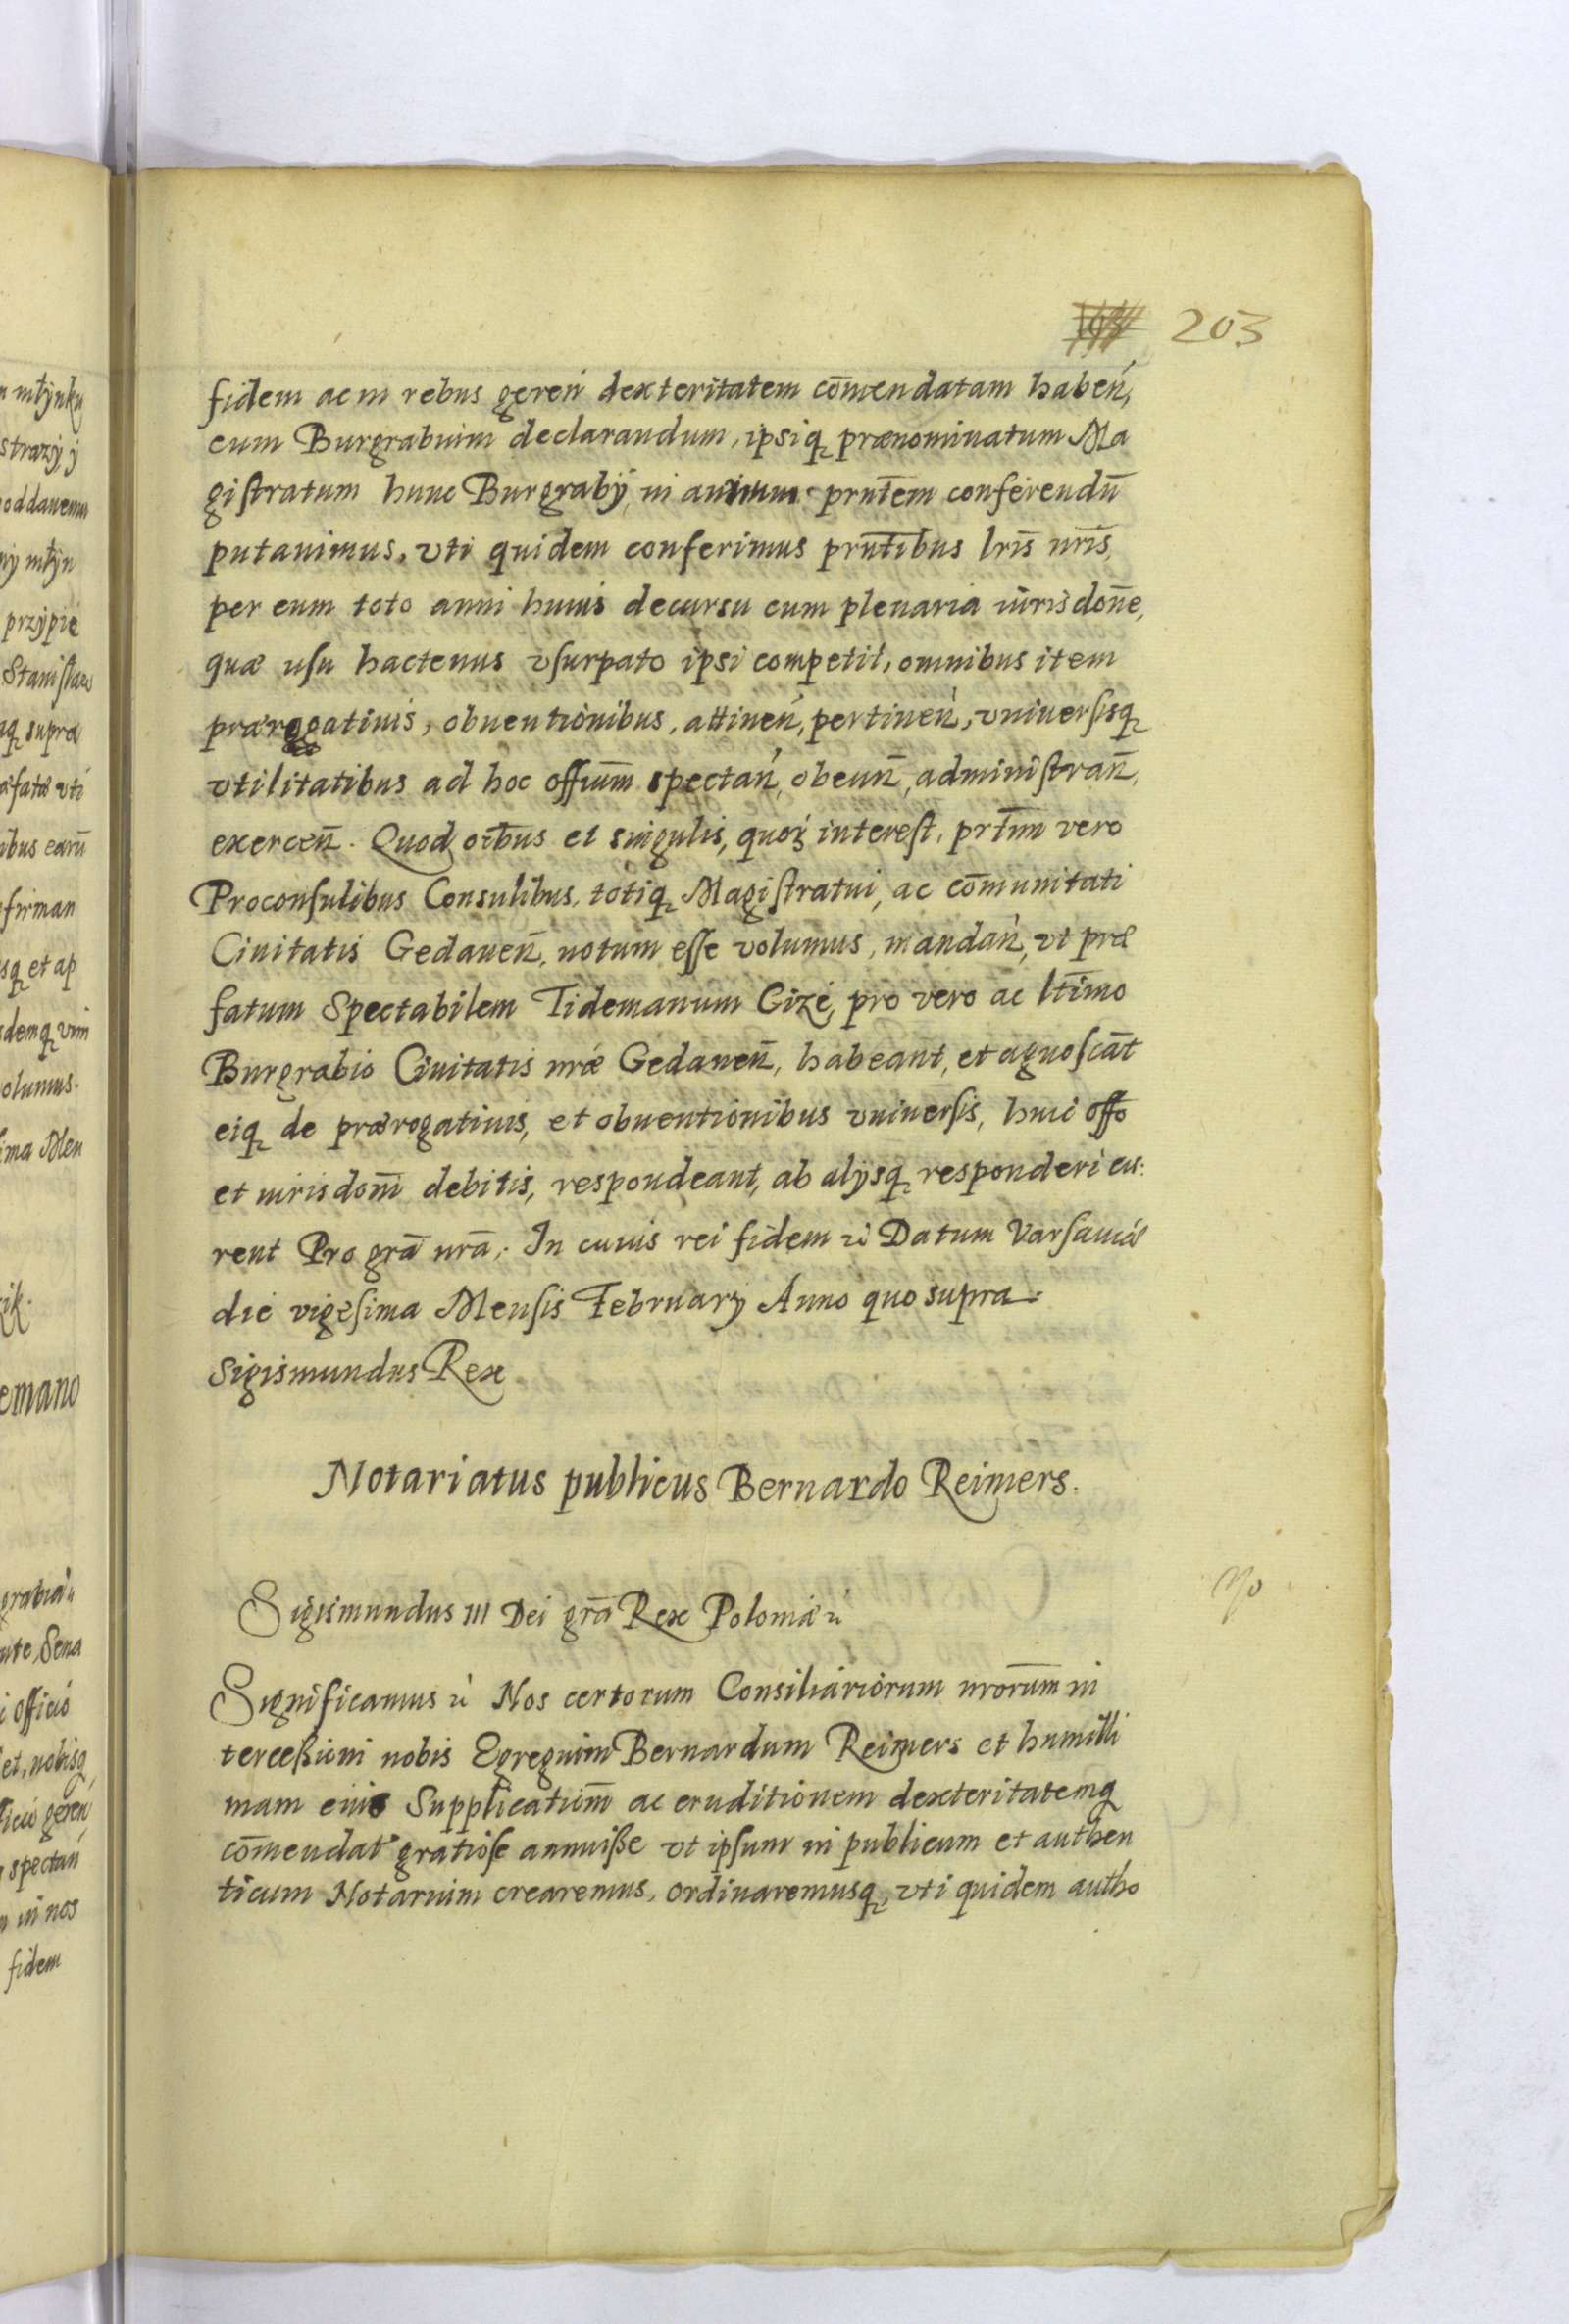 203
fidem ac in rebus geren̄ dexteritatem com̄endatam haben̄,
eum Burgrabium declarandum, ipsiq₃ prænominatum Ma
gistratum hunc Burgrabÿ in annum prntēm conferendū
putauimus, vti quidem conferimus prntībus lrīs nrīs,
per eum toto anni huius decursu cum plenaria iurisdon̄e,
quæ usu hactenus vsurpato ipsi competit, omnibus item
prærogatiuis, obuentionibus, attinen̄, pertinen̄, vniuersisq₃
vtilitatibus ad hoc offium̄ spectan̄, obeun̄, administran̄,
exercen̄. Quod oībus et singulis, quoꝝ interest, prtīm vero
Proconsulibus Consulibus, totiq₃ Magistratui, ac com̄unitati
Ciuitatis Gedanen̄, notum esse volumus, mandan̄, vt præ
fatum Spectabilem Tidemanum Gize, pro vero ac ltīmo
Burgrabio Ciuitatis nræ Gedanen̄, habeant, et agnoscāt
eiq₃ de prærogatiuis, et obuentionibus vniuersis, huic offo
et iurisdoni̅ debitis, respondeant, ab alÿsq₃ responderi cu:
rent Pro grā nrā. In cuius rei fidem etc Datum Varsauiæ
die vigesima Mensis Februarÿ Anno quo supra.
Sigismundus Rex
Notariatus publicus Bernardo Reimers.
Sigismundus III Dei grā Rex Poloniæ etc
Significamus etc Nos certorum Consiliariorum nrorūm in
tercessioni nobis Egregium Bernardum Reimers et humilli
mam eius Supplicatiom̄ ac eruditionem dexteritatemq₃
com̄endat gratiose annuisse vt ipsum in publicum et authen
ticum Notarium crearemus, ordinaremusq₃, vti quidem autho